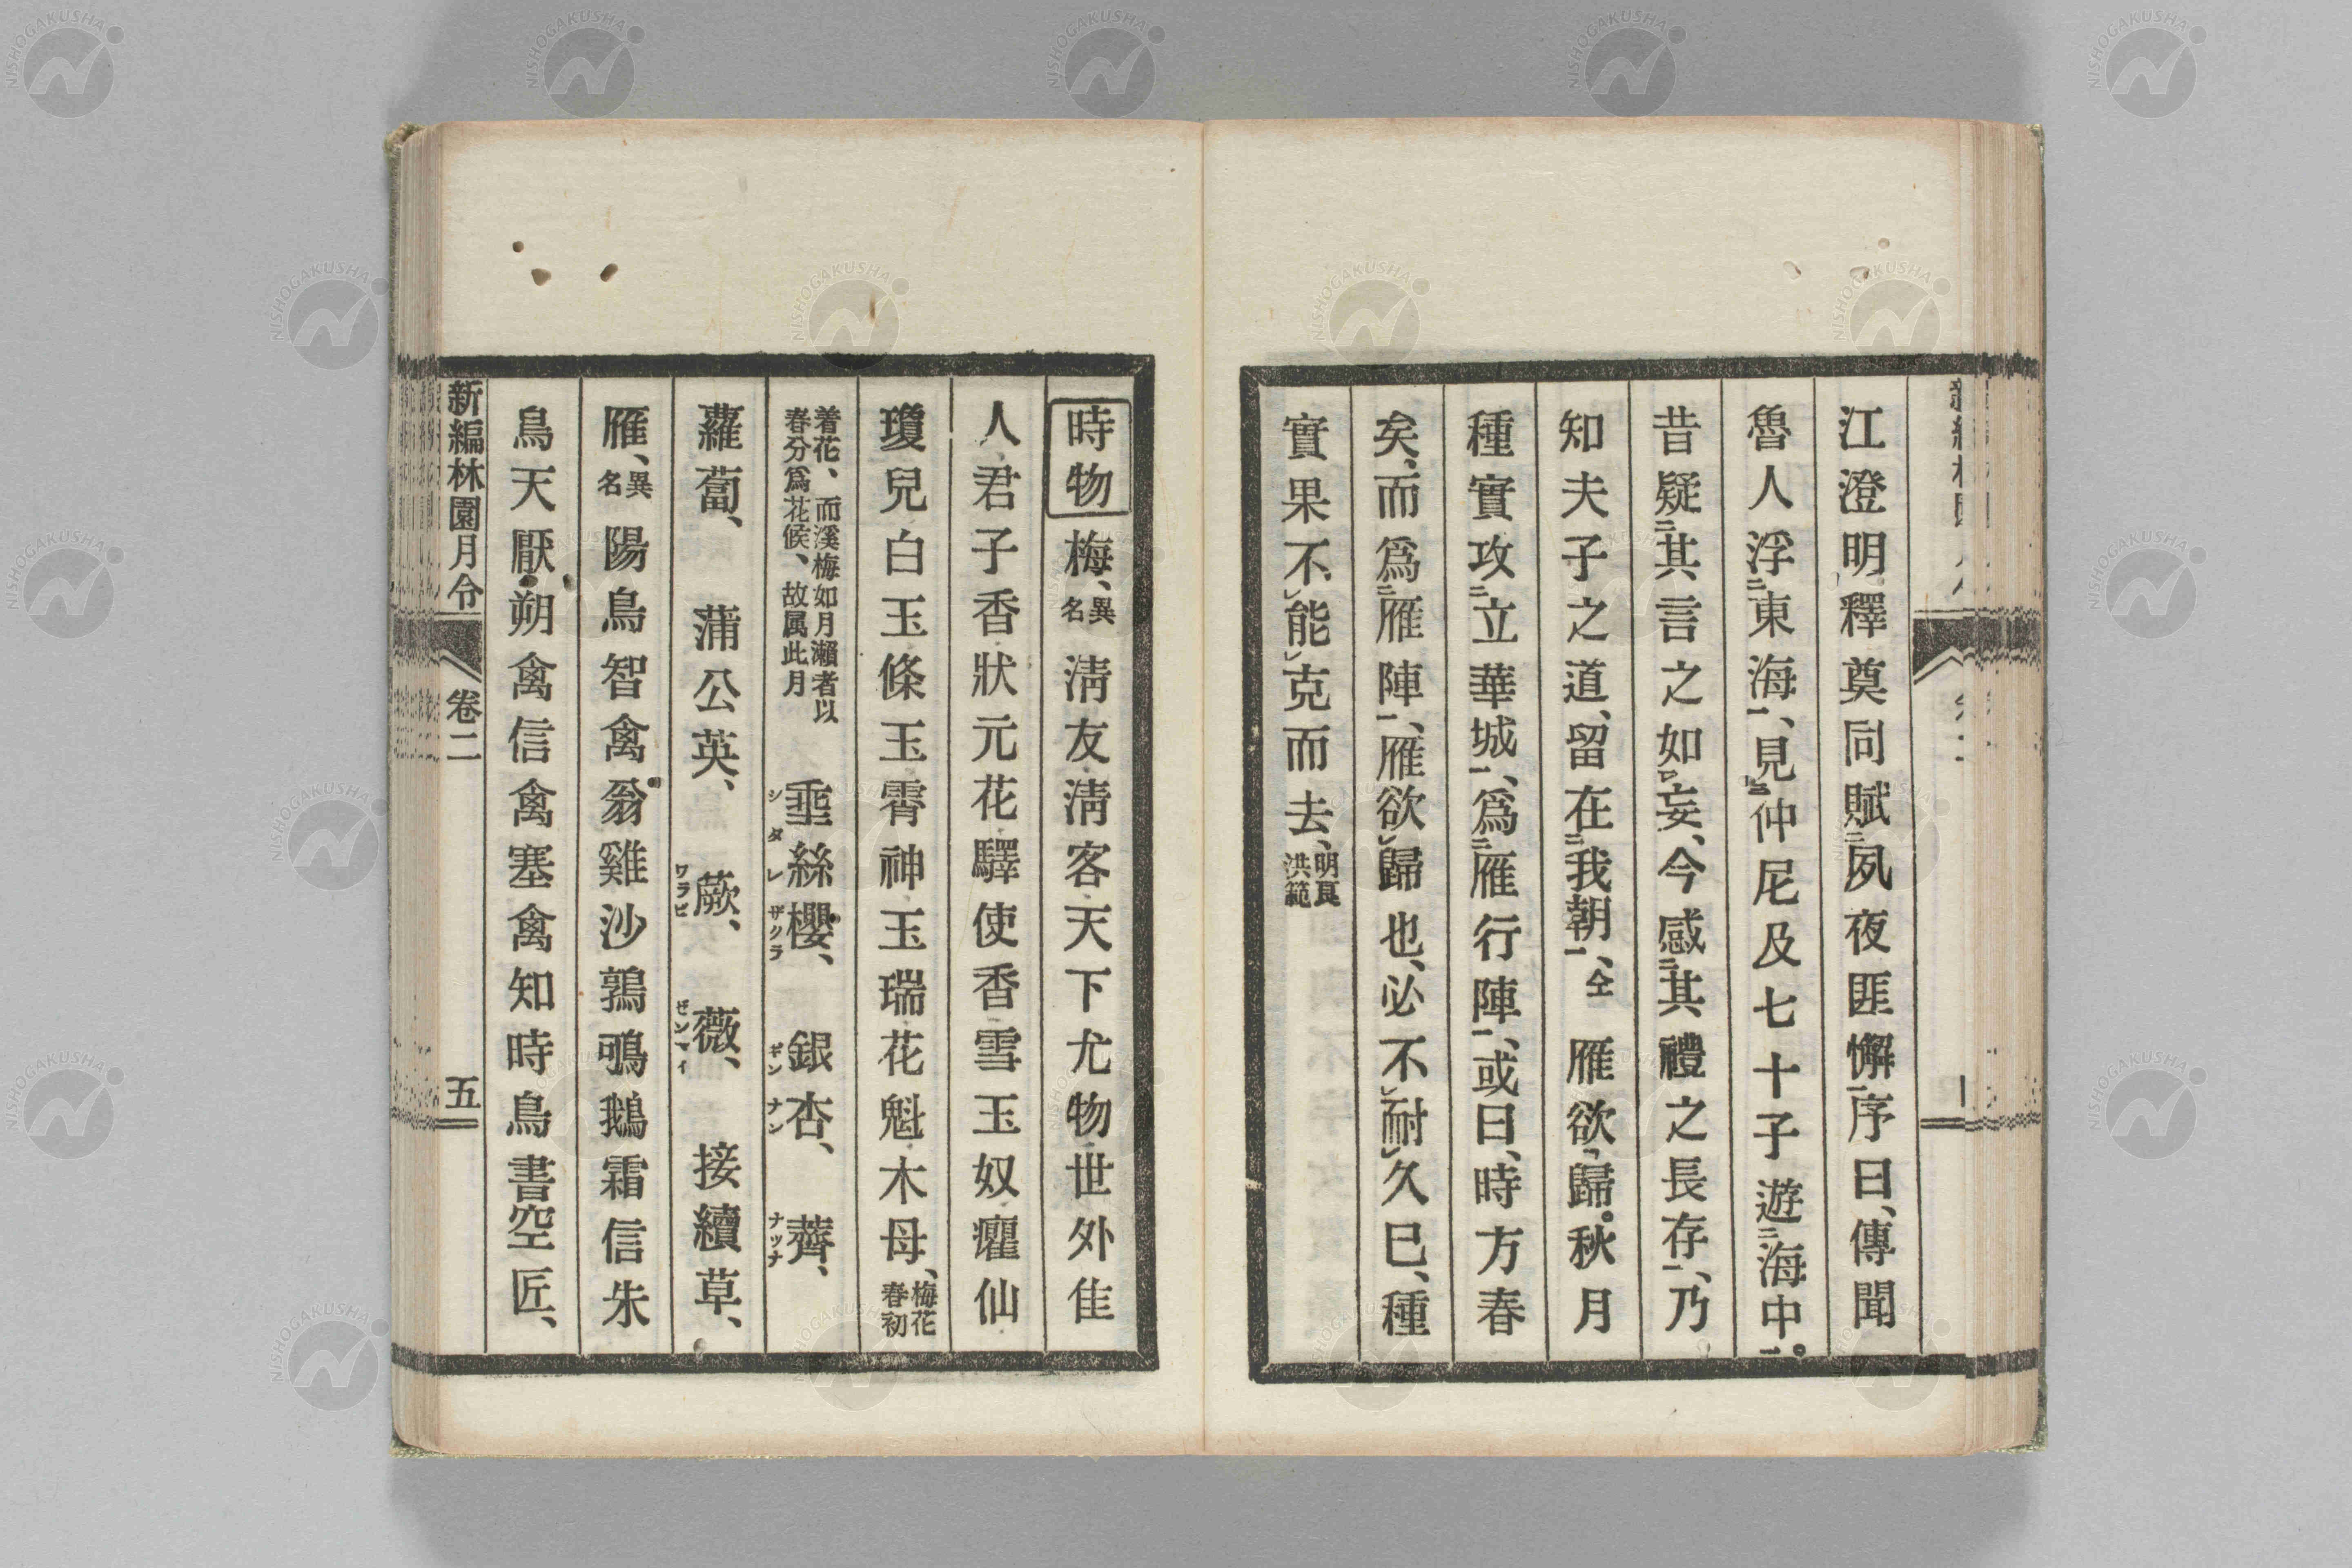 江澄明釋奠同賦夙夜匪懈序曰、傳聞
魯人浮東海、見仲尼及七十子遊海中。
昔疑其言之如妄、今感其禮之長存、乃
知夫子之道、留在我朝、仝 雁欲歸。秋月
種實攻立華城、爲雁行陣、或曰、時方春
矣、而爲雁陣、雁欲歸也、必不耐久巳、種
實果不能克而去、明良洪範
時物 梅、異名 淸友淸客天下尤物世外佳
人君子香狀元花驛使香雪玉奴癯仙
瓊兒白玉條玉霄神玉瑞花魁木母、梅花春初
着花、而溪梅如月瀨者以春分爲花候、故属此月 埀絲櫻、シダレザクラ 銀杏、ギンナン 薺、ナツナ
蘿蔔、 蒲公英、 蕨、ワラビ 薇、ゼンマイ 接續草、
雁、異名 陽鳥智禽翁雞沙鶉鴞鵝霜信朱
鳥天厭朔禽信禽塞禽知時鳥書空匠、
新編林園月令 卷二 五
NISHOGAKUSHA